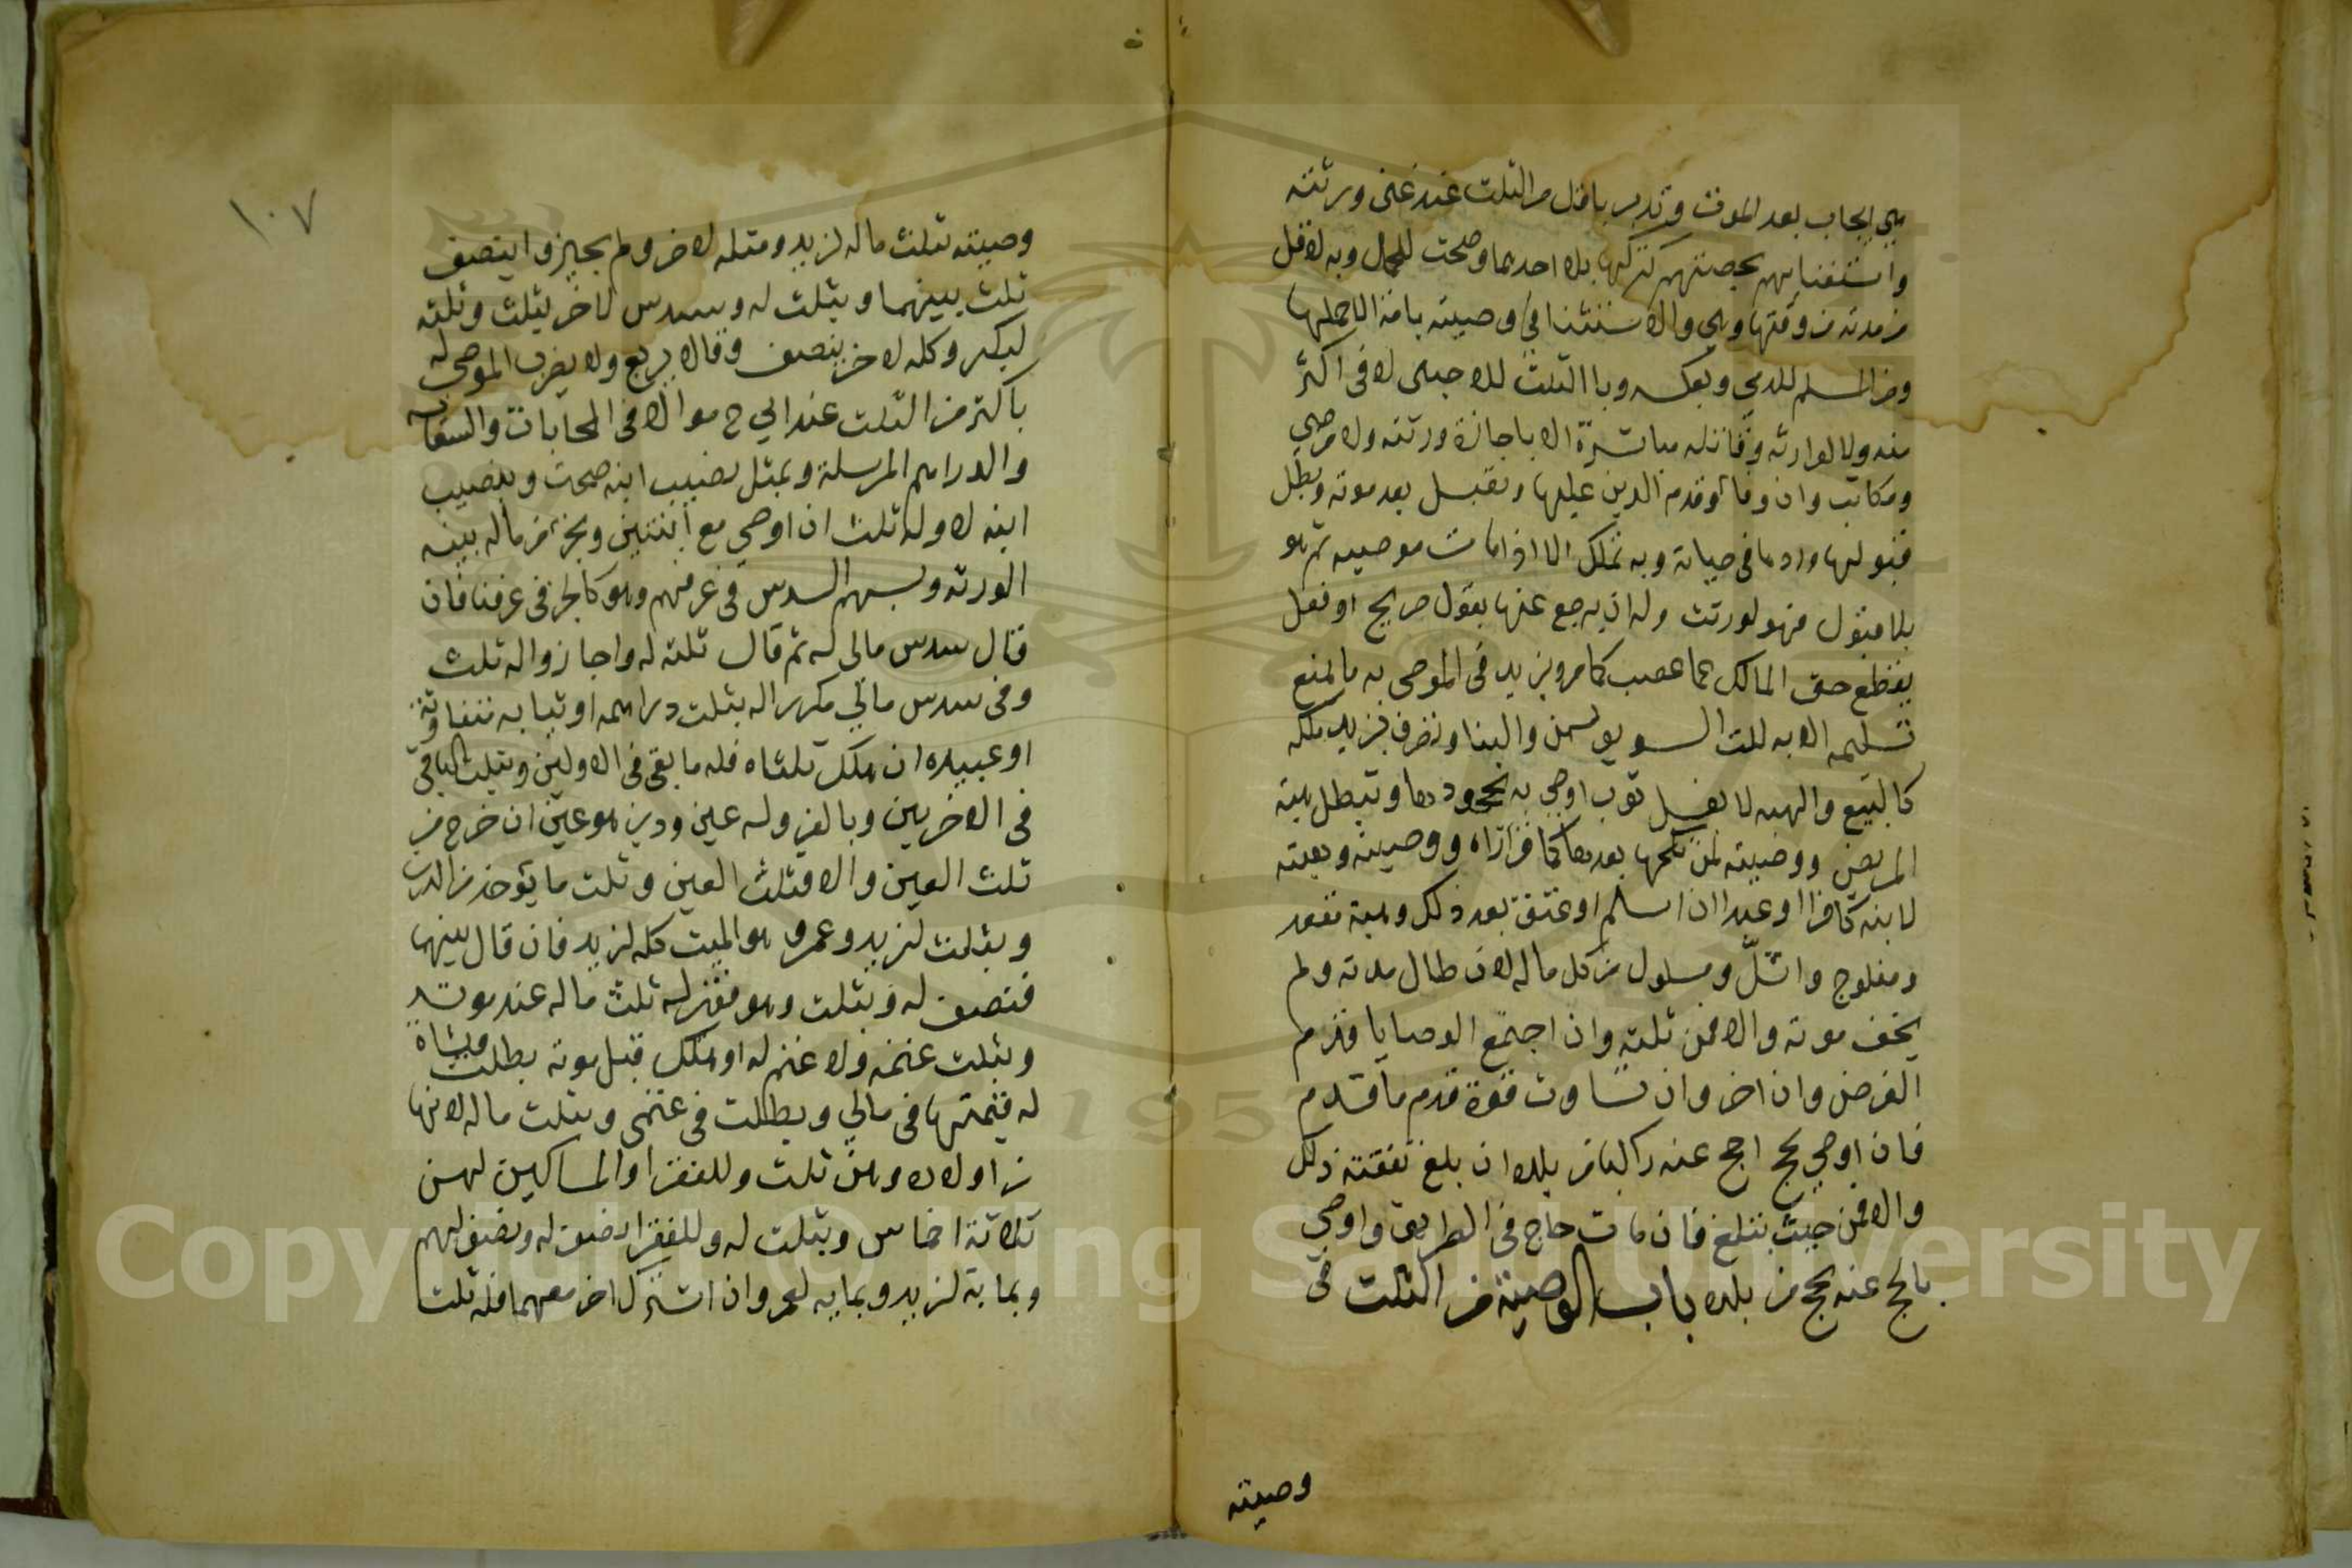 هي ايجاب بعد الموت وندب باقل من الثلث عند غنى ورثته
واستغنايهم بحصتهم كتركها بلا احدهما وصحت للحمل وبه لاقل
من مدته من وقتها وهي والاستثنا في وصيته بامة الا حملها
ومن المسلم للذمي وبعكسه وبا الثلث للاجنبي لا في اكثر
منه ولا لوارثه وقاتله مباشرة الا باجازة ورثته ولا من صبي
ومكاتب وان وفا وقدم الدين عليها وتقبل بعد موته وبطل
قبولها وردها في حياته وبه تملك الا اذا مات موصيه ثم هو
بلا قبول فهو لورثته وله ان يرجع عنها بقول صريح او فعل
يقطع حق المالك عما غصب كما مر ويزيد في الموصى به ما يمنع
تسليمه الا به كلت السويق بسمن والبنا وتصرف يزيد ملكه
كالبيع والهبه لا بغسل ثوب اوصي به بجحودها وتبطل هبة
المريض ووصيته لمن نكحها بعدها كاقراره ووصيته وهبته
لابنه كافرا او عبدا ان اسلم او عتق بعد ذلك وهبة مقعد
ومفلوج واشلّ ومسلول من كل ماله لان طال مدته ولم
يخف موته والا فمن ثلثه وان اجتمع الوصايا قدم
الفرض وان اخر وان تساوت قوة قدم ما قدم
فان اوصي بحج احج عنه راكبا من بلده ان بلغ نفقته ذلك
والا فمن حيث تبلغ فان مات حاج في الطريق واوصي
بالحج عنه يحج من بلده باب الوصية من الثلث في
وصيته
١٠٧
وصيته بثلث ماله لزيد ومثله لاخر ولم يجيزوا ينصف
ثلث بينهما وبثلث له وسدس لاخر يثلث وثلثه
لبكر وكله لاخر ينصف وقالا يربع ولا يضرب الموصى له
باكثر من الثلث عند ابي ح موالا في المحابات والسعايه
والدراهم المرسلة وبمثل نصيب ابنه صحت وبنصيب
ابنه لا وله ثلث ان اوصي مع ابنين وبجز من ماله بينه
الورثه وبسهم السدس في عرفهم وهو كالجز في عرفنا فان
قال سدس مالي له ثم قال ثلثه له واجازوا له ثلث
وفى سدس مالي مكررا له بثلث دراهمه او ثيابه متفاوته
او عبيده ان هلك ثلثاه فله ما بقي في الاولين وبثلث الباقي
في الاخرين وبالف وله عين ودين هو عين ان خرج من
ثلث العين والا فثلث العين وثلث ما يؤخذ من الدين
وبثلث لزيد وعمرو هو الميت كله لزيد فان قال بينها
فنصفه له وبثلث وهو فقير له ثلث ماله عند موته
وبثلث غنمه ولا غنم له او هلك قبل موته بطلت وبشاة
له قيمتها في مالي وبطلت في غنمي وبثلث ماله لامها
ت اولاده وهن ثلث وللفقرا والمساكين لهن
ثلاثة اخماس وبثلث له وللفقرا نصف له ونصف لهم
وبماية لزيد وبمايه لعمر وان اشرك اخر معهما فله ثلث